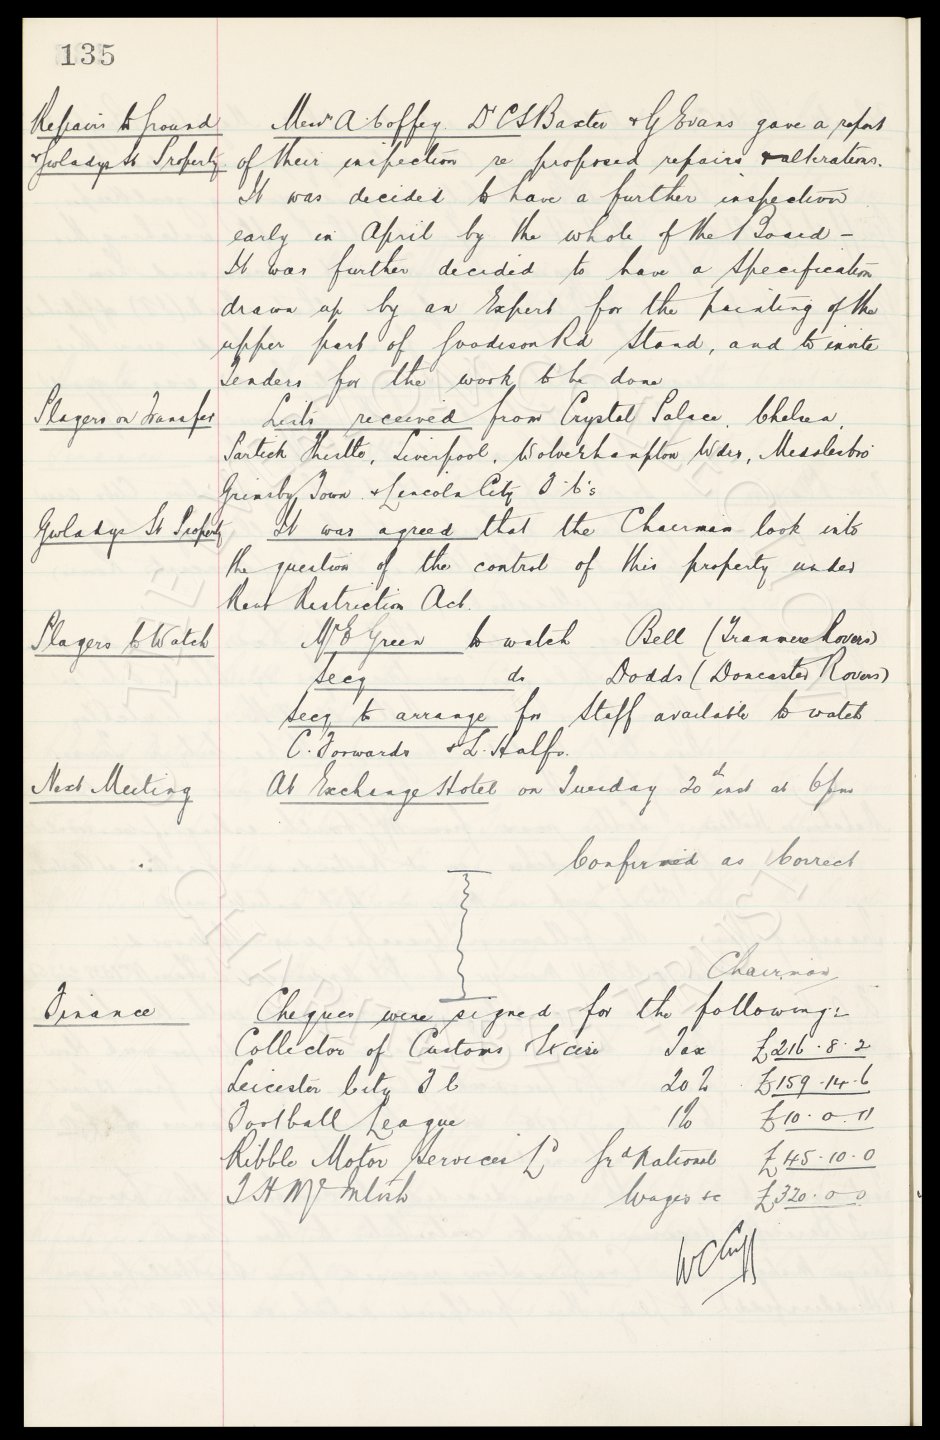 135
Repairs to Ground Messrs A. Coffey. Dr C S Baxter & G Evans gave a report
& Gwladys St Property of their inspection re proposed repairs & alterations.
It was decided to have a further inspection
early in April by the whole of the Board -
It was further decided to have a specification
drawn up by an Expert for the painting of the
upper part of Goodison Rd Stand, and to invite
tenders for the work to be done
Players on Transfer Lists received from Crystal Palace, Chelsea,
Partick Thistle, Liverpool, Wolverhampton Wdrs, Middlesbro'
Grimsby Town & Lincoln City F.C's
Gwladys St Property It was agreed that the Chairman look into
the question of the control of this property under
Rent Restriction Act.
Players to Watch Mr E Green to watch Bell (Tranmere Rovers)
Secy do Dodds (Doncaster Rovers)
Secy to arrange for Staff available to watch
C. Forwards & L. Halfs.
Next Meeting At Exchange Hotel on Tuesday 20th inst at 6pm
Confirmed as Correct
Chairman
Finance Cheques were signed for the following:-
Collector of Customs & Excise Tax £216.8.2
Leicester City F C 20% £159.14.6
Football League 1% £10.0.11
Ribble Motor Services Ld Grd National £45.10.0
T H McIntosh Wages &c £320.0.0
W C Cuff